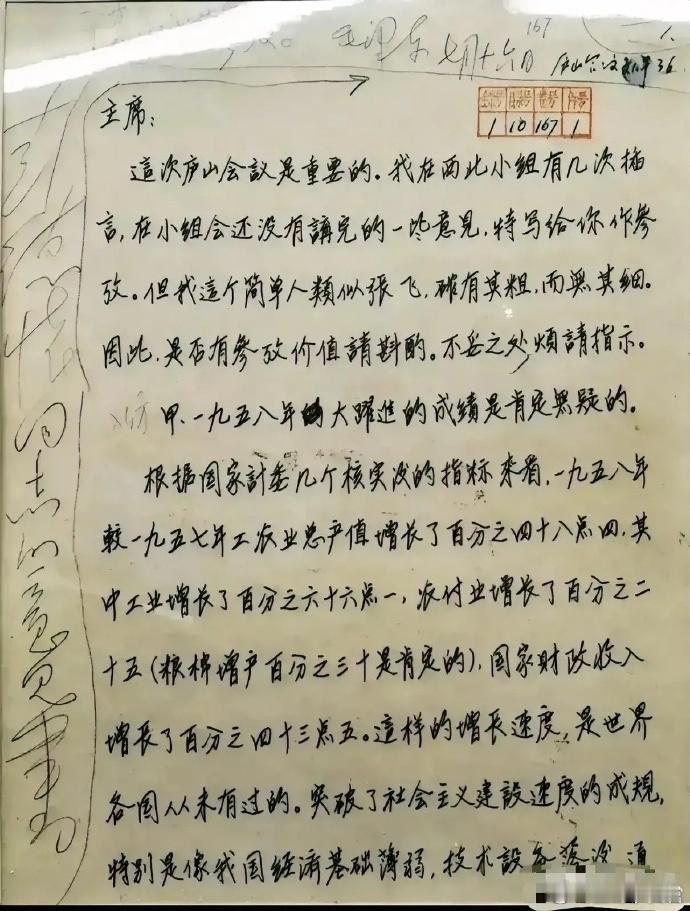 毛泽东 七月十六日
167
1.
1 10 167 1
彭德怀同志的意见书
主席：
這次庐山会议是重要的。我在西北小组有几次插
言，在小组会还没有講完的一些意見，特写给你作參
攷。但我這个简单人類似張飞，確有其粗，而無其细。
因此，是否有參攷价值請斟酌。不妥之处，煩請指示。
甲、一九五八年大躍進的成绩是肯定無疑的。
根据国家計委几个核实后的指标来看，一九五八年
較一九五七年工农业总产值增长了百分之四十八点四，其
中工业增长了百分之六十六点一，农付业增长了百分之二
十五（粮棉增产百分之三十是肯定的），国家财政收入
增长了百分之四十三点五。這样的增长速度，是世界
各国从未有过的。突破了社会主义建設速度的成規，
特别是像我国经濟基础薄弱，技术設备落后，通